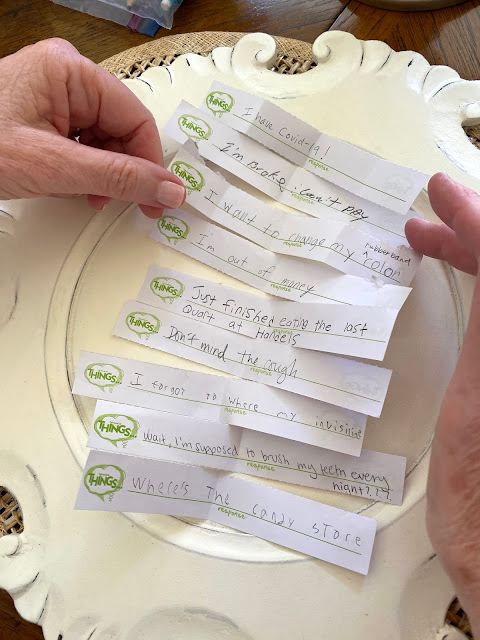 THINGS...
I have Covid-19!
response
THINGS...
I'm Broke, can't pay
THINGS...
rubberband
I want to change my ^ color
response
THINGS...
I'm out of money
response
THINGS...
Just finished eating the last
Quart at Handels
response
THINGS...
Don't mind the cough
THINGS...
I forgot to where my invisiline
response
THINGS...
wait, I'm supposed to brush my teeth every
night?.?.?.
response
THINGS...
Where's The candy store
response